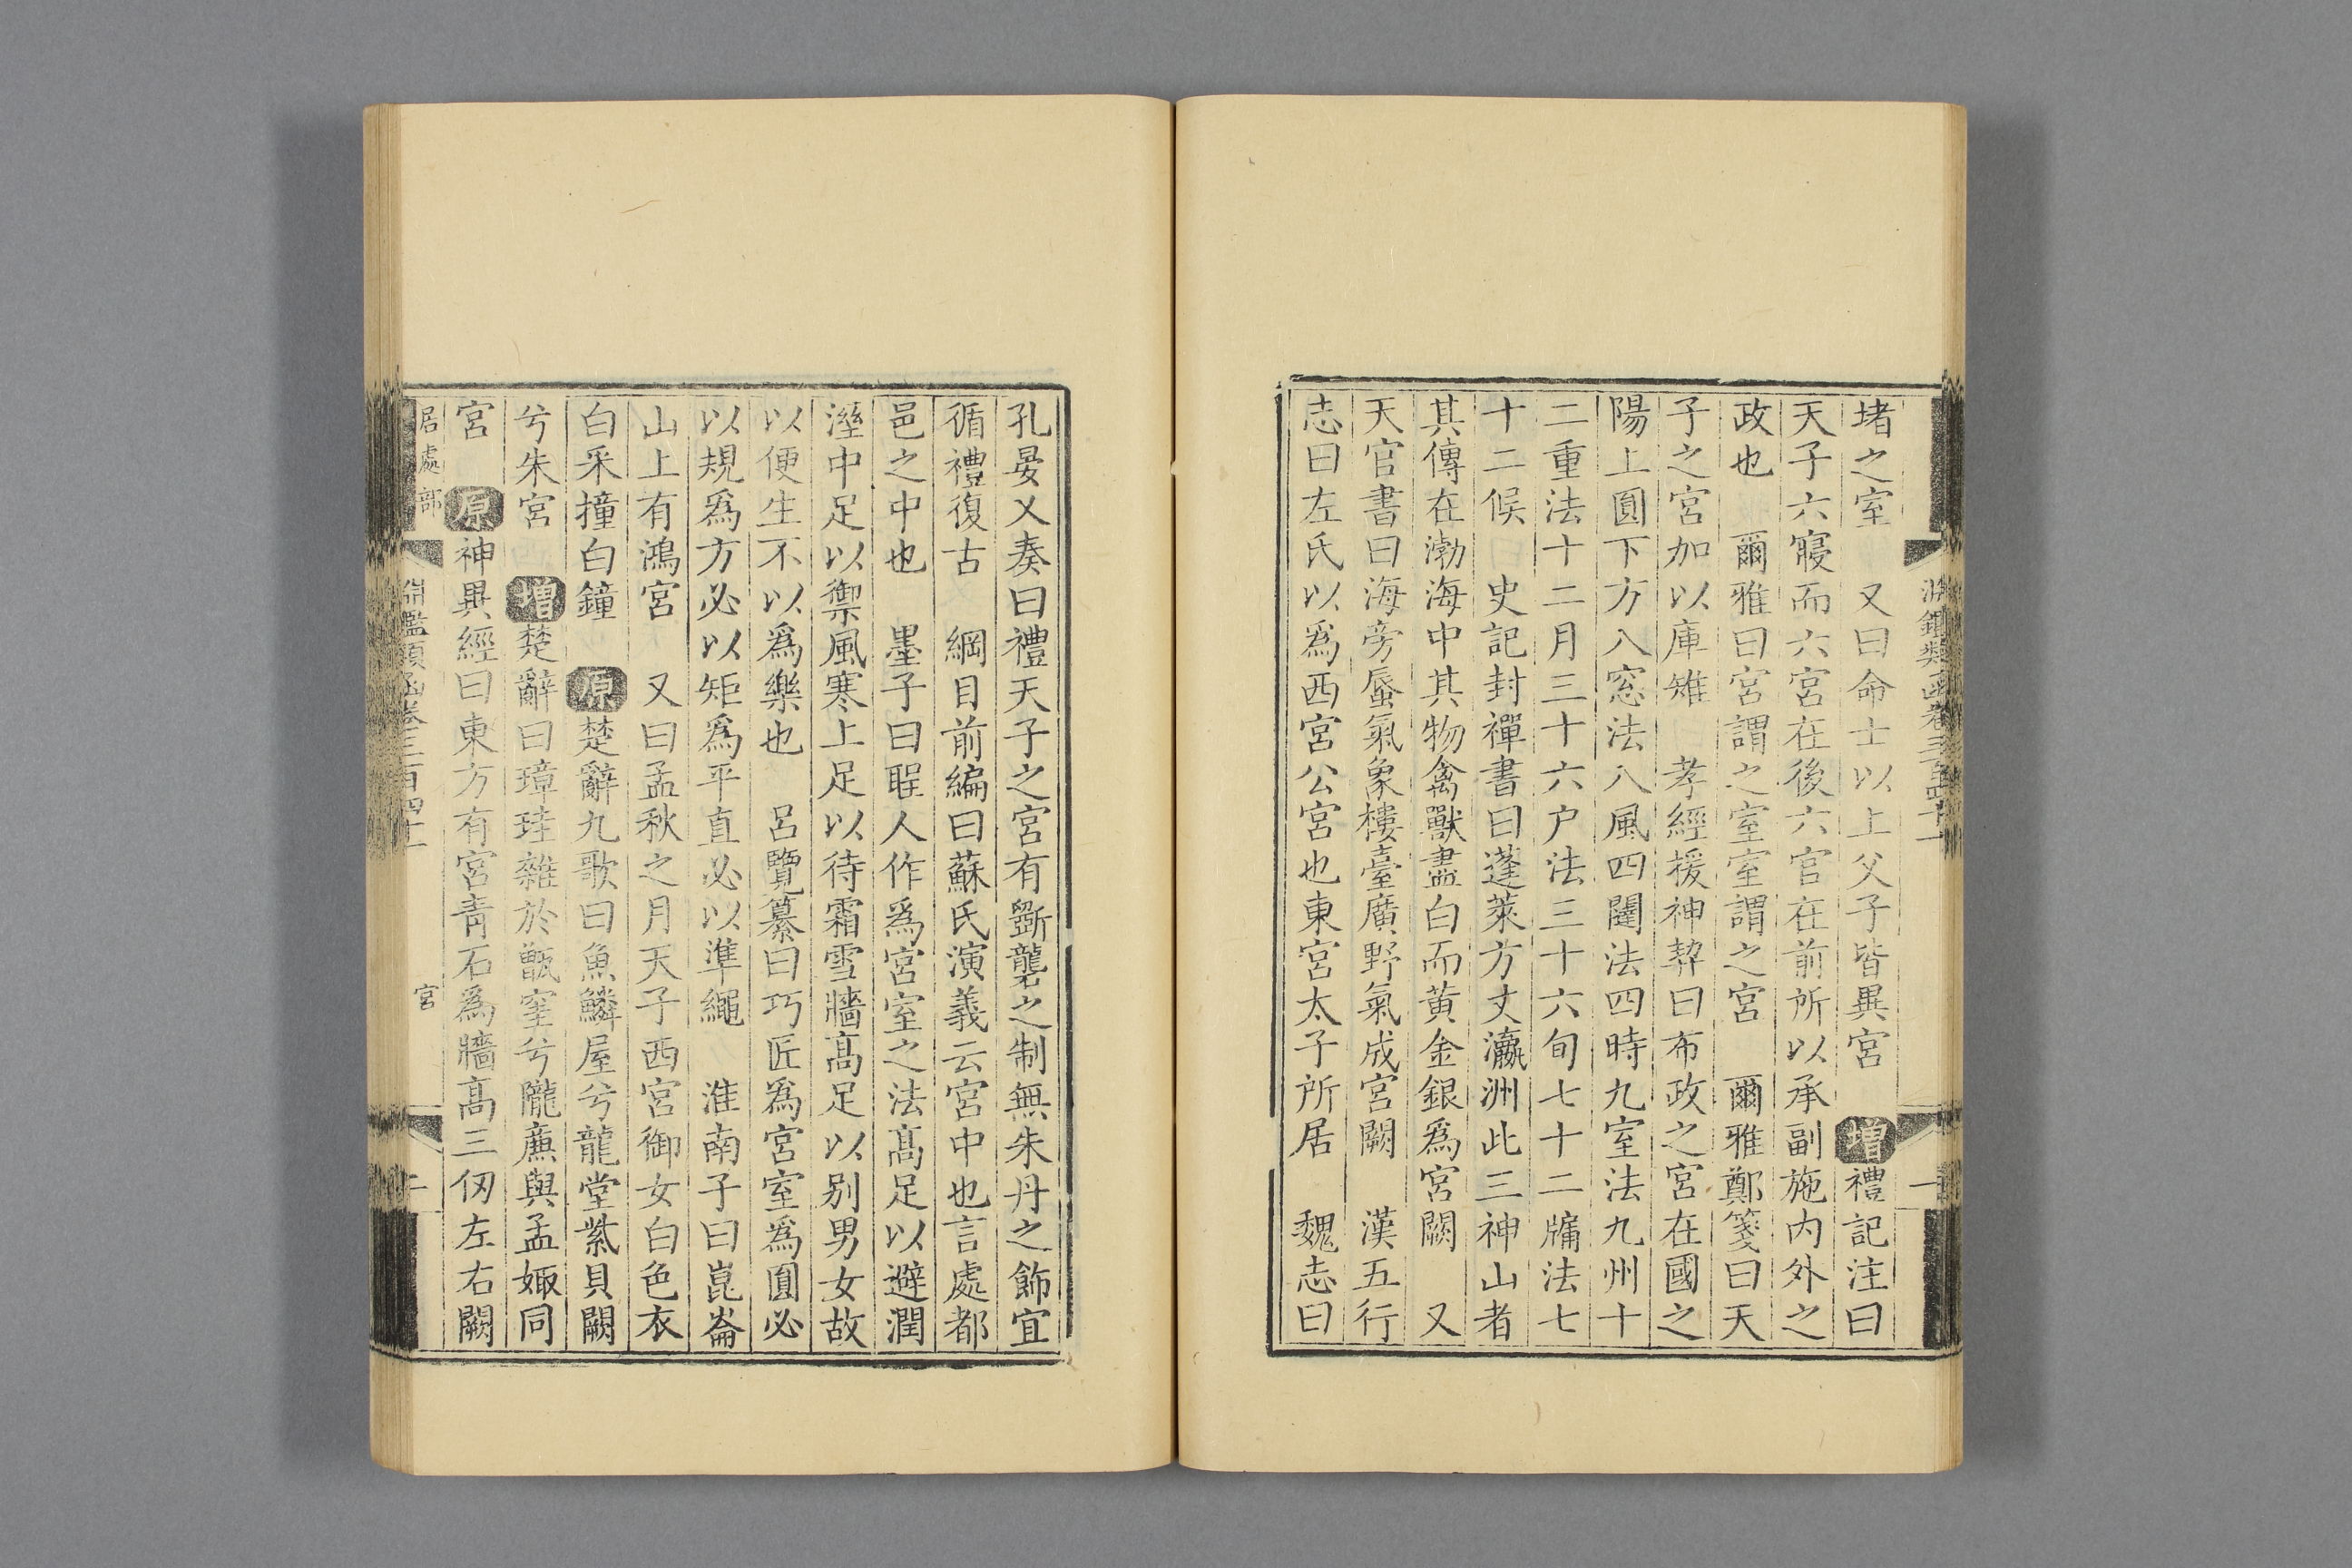 淵鑑類函卷三百四十一
一
堵之室　又曰命士以上父子皆異宮　增禮記注曰
天子六寢而六宮在後六官在前所以承副施內外之
政也　爾雅曰宮謂之室室謂之宮　爾雅鄭箋曰天
子之宮加以庫雉　孝經援神契曰布政之宮在國之
陽上圓下方八窓法八風四闥法四時九室法九州十
二重法十二月三十六户法三十六旬七十二牖法七
十二候　史記封禪書曰蓬萊方丈瀛洲此三神山者
其傳在渤海中其物禽獸盡白而黃金銀爲宮闕　又
天官書曰海旁蜃氣象樓臺廣野氣成宮闕　漢五行
志曰左氏以爲西宮公宮也東宮太子所居　魏志曰
孔晏乂奏曰禮天子之宮有斲礱之制無朱丹之飾宜
循禮復古　綱目前編曰蘇氏演義云宮中也言處都
邑之中也　墨子曰聖人作爲宮室之法高足以避潤
溼中足以禦風寒上足以待霜雪牆高足以别男女故
以便生不以爲樂也　呂覽纂曰巧匠爲宮室爲圓必
以規爲方必以矩爲平直必以準繩　淮南子曰崑崙
山上有鴻宮　又曰孟秋之月天子西宮御女白色衣
白采撞白鐘　原楚辭九歌曰魚鱗屋兮龍堂紫貝闕
兮朱宮　增楚辭曰璋珪雜於甑窐兮隴廉與孟娵同
宮　原神異經曰東方有宮青石爲牆高三仞左右闕
居處部
淵鑑類函卷三百四十一
宮
二